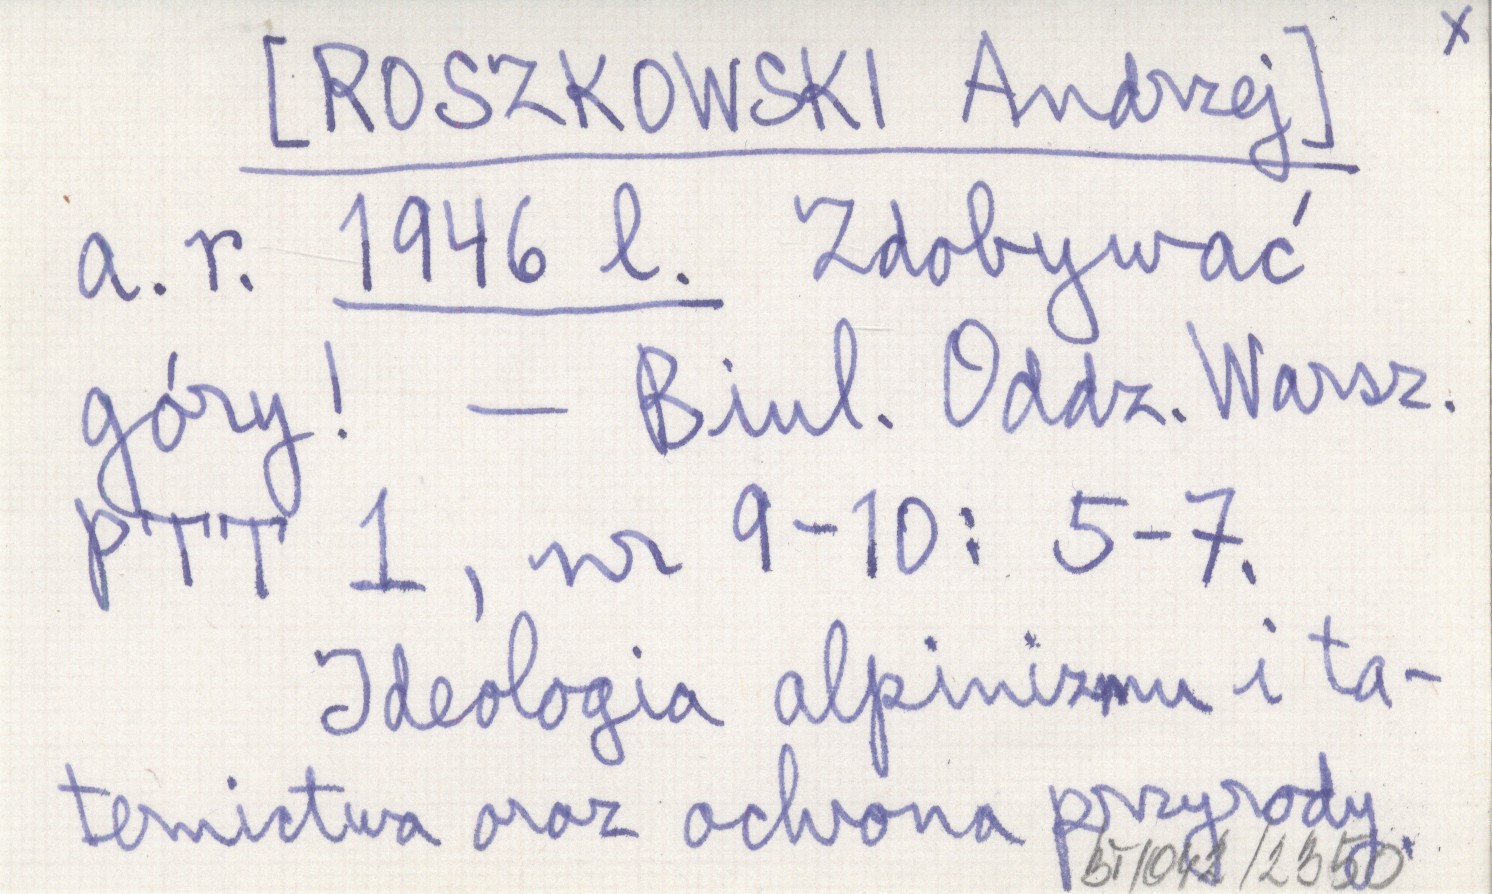 x
[ROSZKOWSKI Andrzej]
a. r. 1946 l. Zdobywać
góry! — Biul. Oddz. Warsz.
PTT 1, nr 9-10: 5-7.
Ideologia alpinizmu i ta-
ternictwa oraz ochrona przyrody.